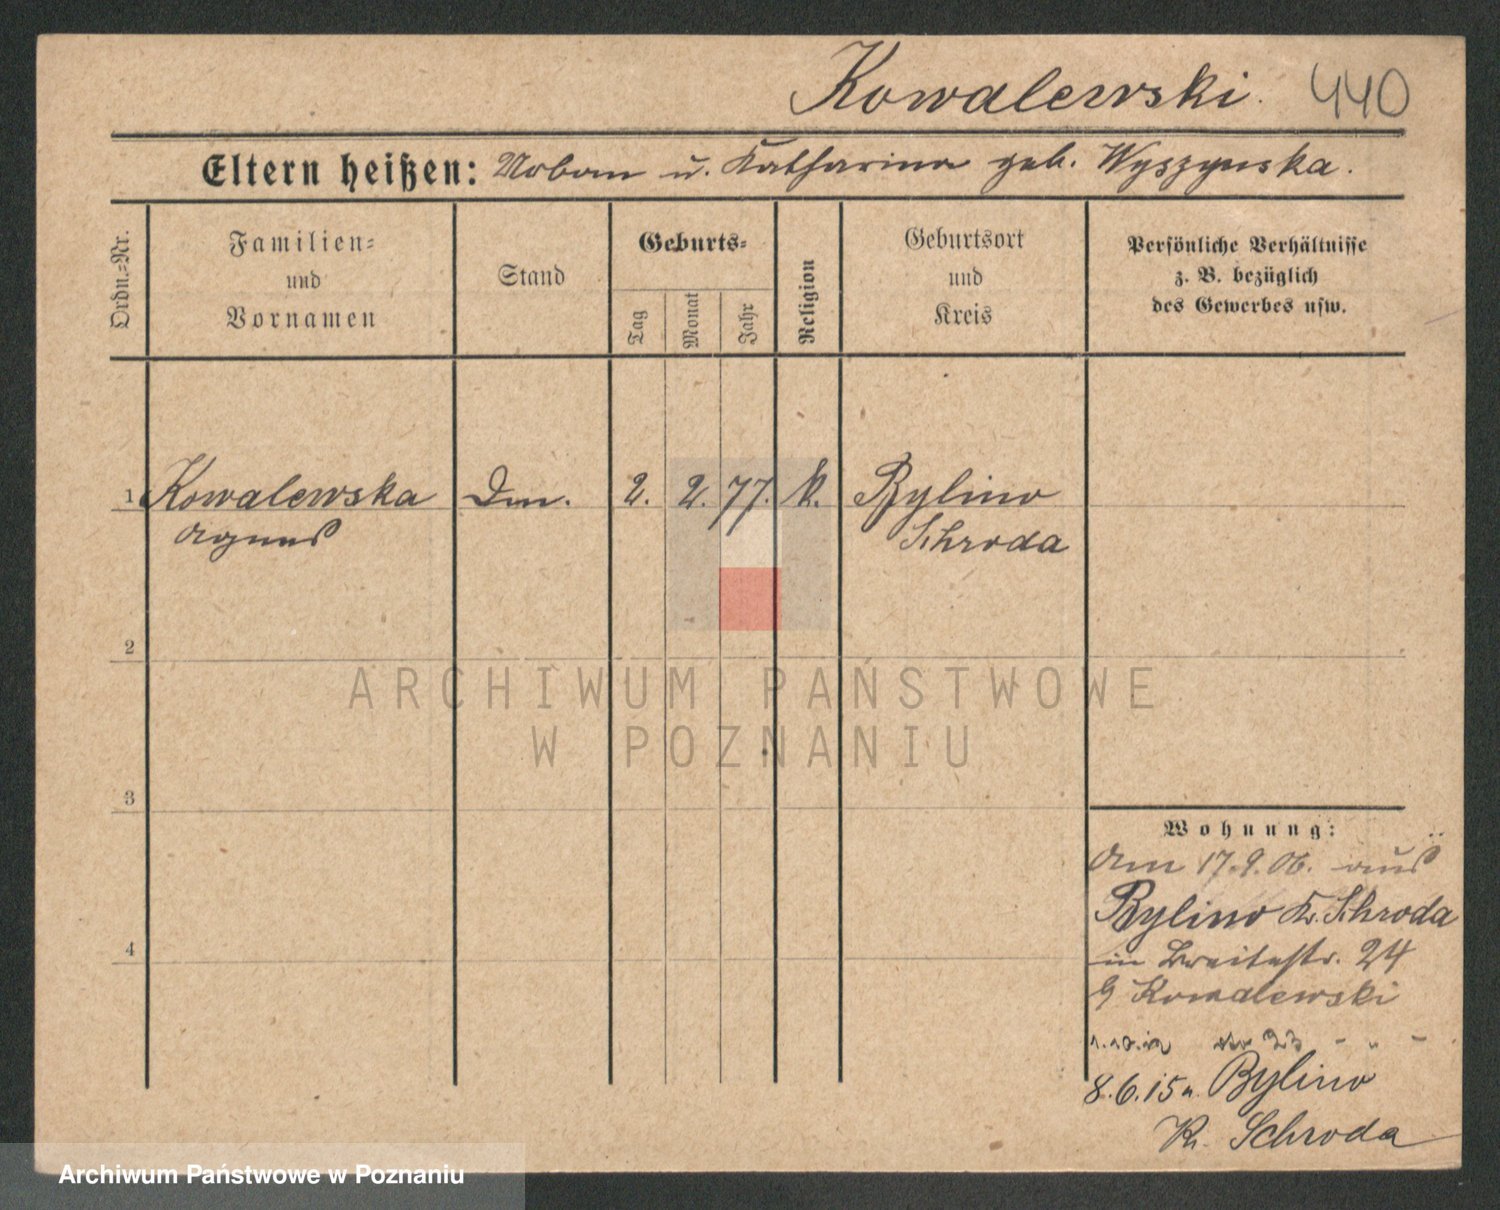 Kowalewski. 440
Eltern heißen: Urban u. Katharina geb. Wyszynska.
Ordn.=Nr.
Familien=
und
Vornamen
Stand
Geburts=
Tag
Monat
Jahr
Religion
Geburtsort
und
Kreis
Persönliche Verhältnisse
z. B. bezüglich
des Gewerbes usw.
1 Kowalewska 2. 2. 77. k. Bylino
Agnes Schroda
2
ARCHIWUM PAŃSTWOWE
W POZNANIU
3
Wohnung:
Am 17.9.06. aus
Bylino Kr. Schroda
4
in Breitestr. 24
Kowalewski
1.10. 23 - " -
8.6.15 n. Bylino
Kr. Schroda
Archiwum Państwowe w Poznaniu